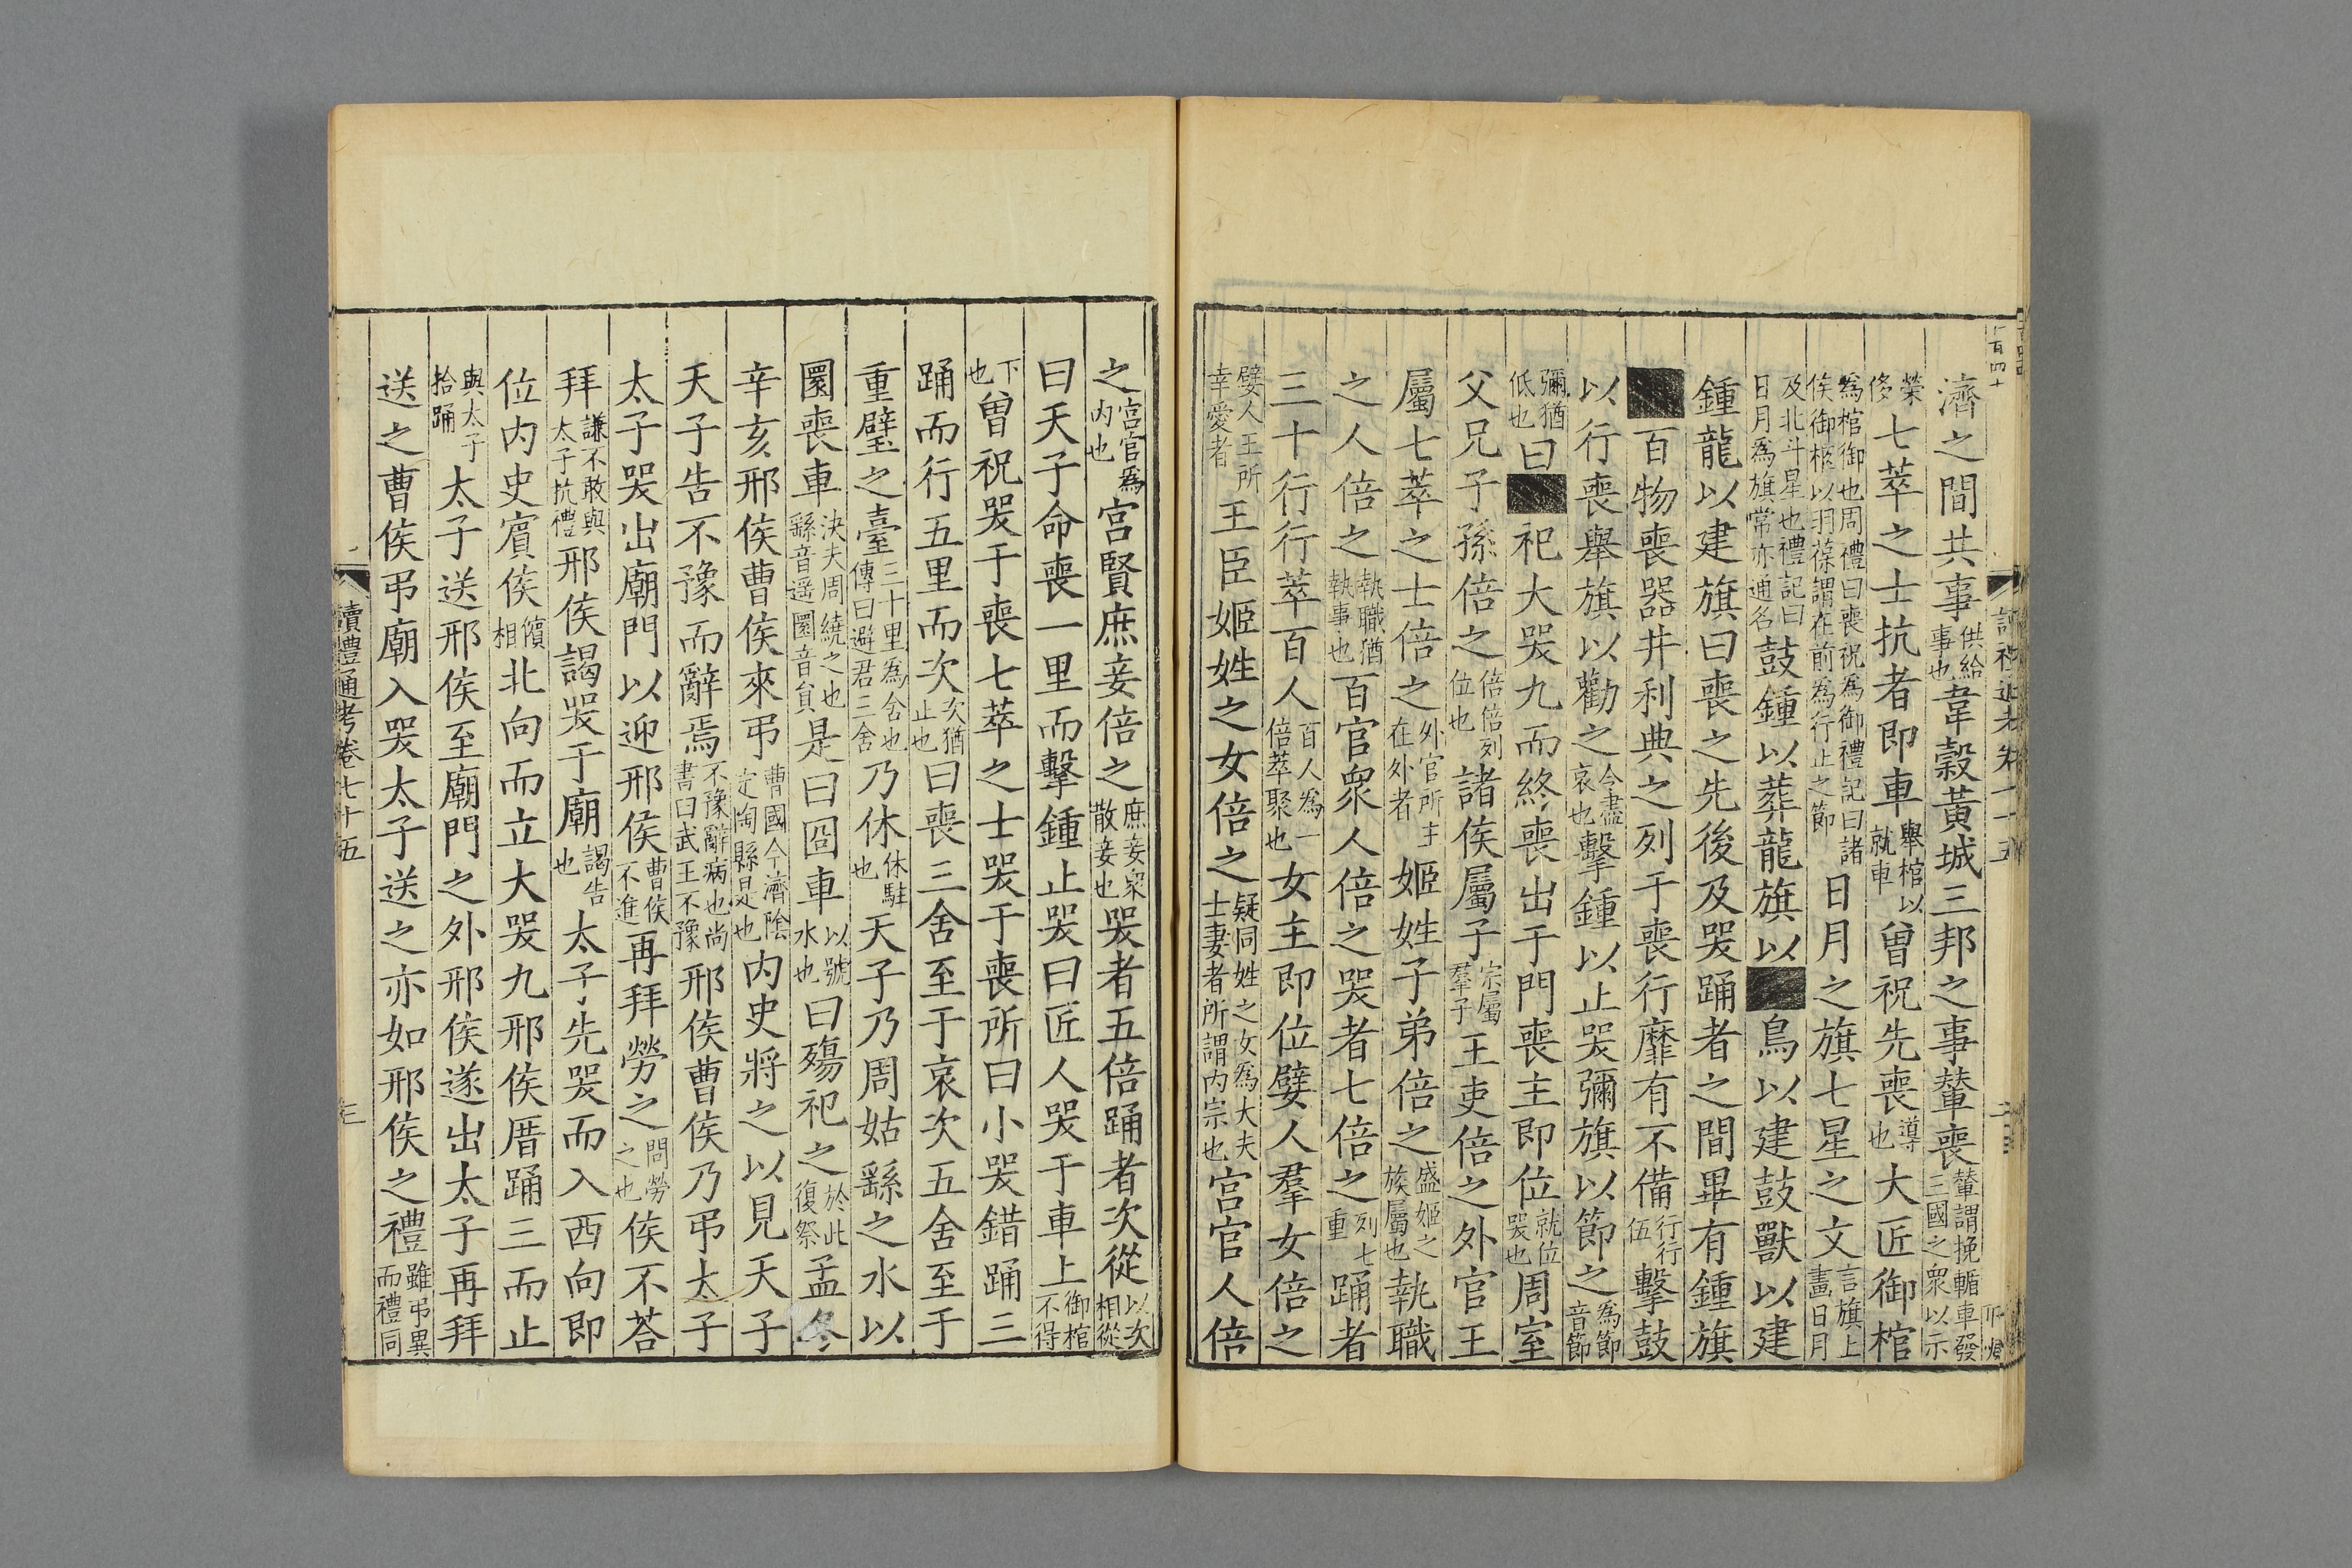 濟之間共事供給事也韋穀黃城三邦之事輦喪輦謂挽輀車發三國之衆以示
榮侈七萃之士抗者即車舉棺以就車曾祝先喪導也大匠御棺
爲棺御也周禮曰喪祝爲御禮記曰諸侯御柩以羽葆謂在前爲行止之節日月之旗七星之文言旗上畫日月
及北斗星也禮記曰日月爲旗常亦通名鼓鍾以葬龍旗以■鳥以建鼓獸以建
鍾龍以建旗曰喪之先後及哭踊者之間畢有鍾旗
■百物喪器井利典之列于喪行靡有不備行行伍擊鼓
以行喪舉旗以勸之令盡哀也擊鍾以止哭彌旗以節之爲節音節
彌猶低也曰■祀大哭九而終喪出于門喪主即位就位哭也周室
父兄子孫倍之倍倍列位也諸侯屬子宗屬羣子王吏倍之外官王
屬七萃之士倍之外官所主在外者姬姓子弟倍之盛姬之族屬也執職
之人倍之執職猶執事也百官衆人倍之哭者七倍之列七重踊者
三十行行萃百人百人爲一倍萃聚也女主即位嬖人羣女倍之
嬖人王所幸愛者王臣姬姓之女倍之疑同姓之女爲大夫士妻者所謂内宗也宮官人倍
之宮官爲内也宮賢庶妾倍之庶妾衆散妾也哭者五倍踊者次從以次相從
曰天子命喪一里而擊鍾止哭曰匠人哭于車上御棺不得
下也曾祝哭于喪七萃之士哭于喪所曰小哭錯踊三
踊而行五里而次次猶止也曰喪三舍至于哀次五舍至于
重璧之臺三十里爲舍也傳曰避君三舍乃休休駐也天子乃周姑繇之水以
圜喪車決夫周繞之也繇音遥圜音貟是曰囧車以號水也曰殤祀之於此復祭孟冬
辛亥邢侯曹侯來弔曹國今濟陰定陶縣是也内史將之以見天子
天子告不豫而辭焉不豫辭病也尚書曰武王不豫邢侯曹侯乃弔太子
太子哭出廟門以迎邢侯曹侯不進再拜勞之問勞之也侯不荅
拜謙不敢與太子抗禮邢侯謁哭于廟謁告也太子先哭而入西向即
位内史賓侯儐相北向而立大哭九邢侯厝踊三而止
與太子拾踊太子送邢侯至廟門之外邢侯遂出太子再拜
送之曹侯弔廟入哭太子送之亦如邢侯之禮雖弔異而禮同
讀禮通考卷七十五
三